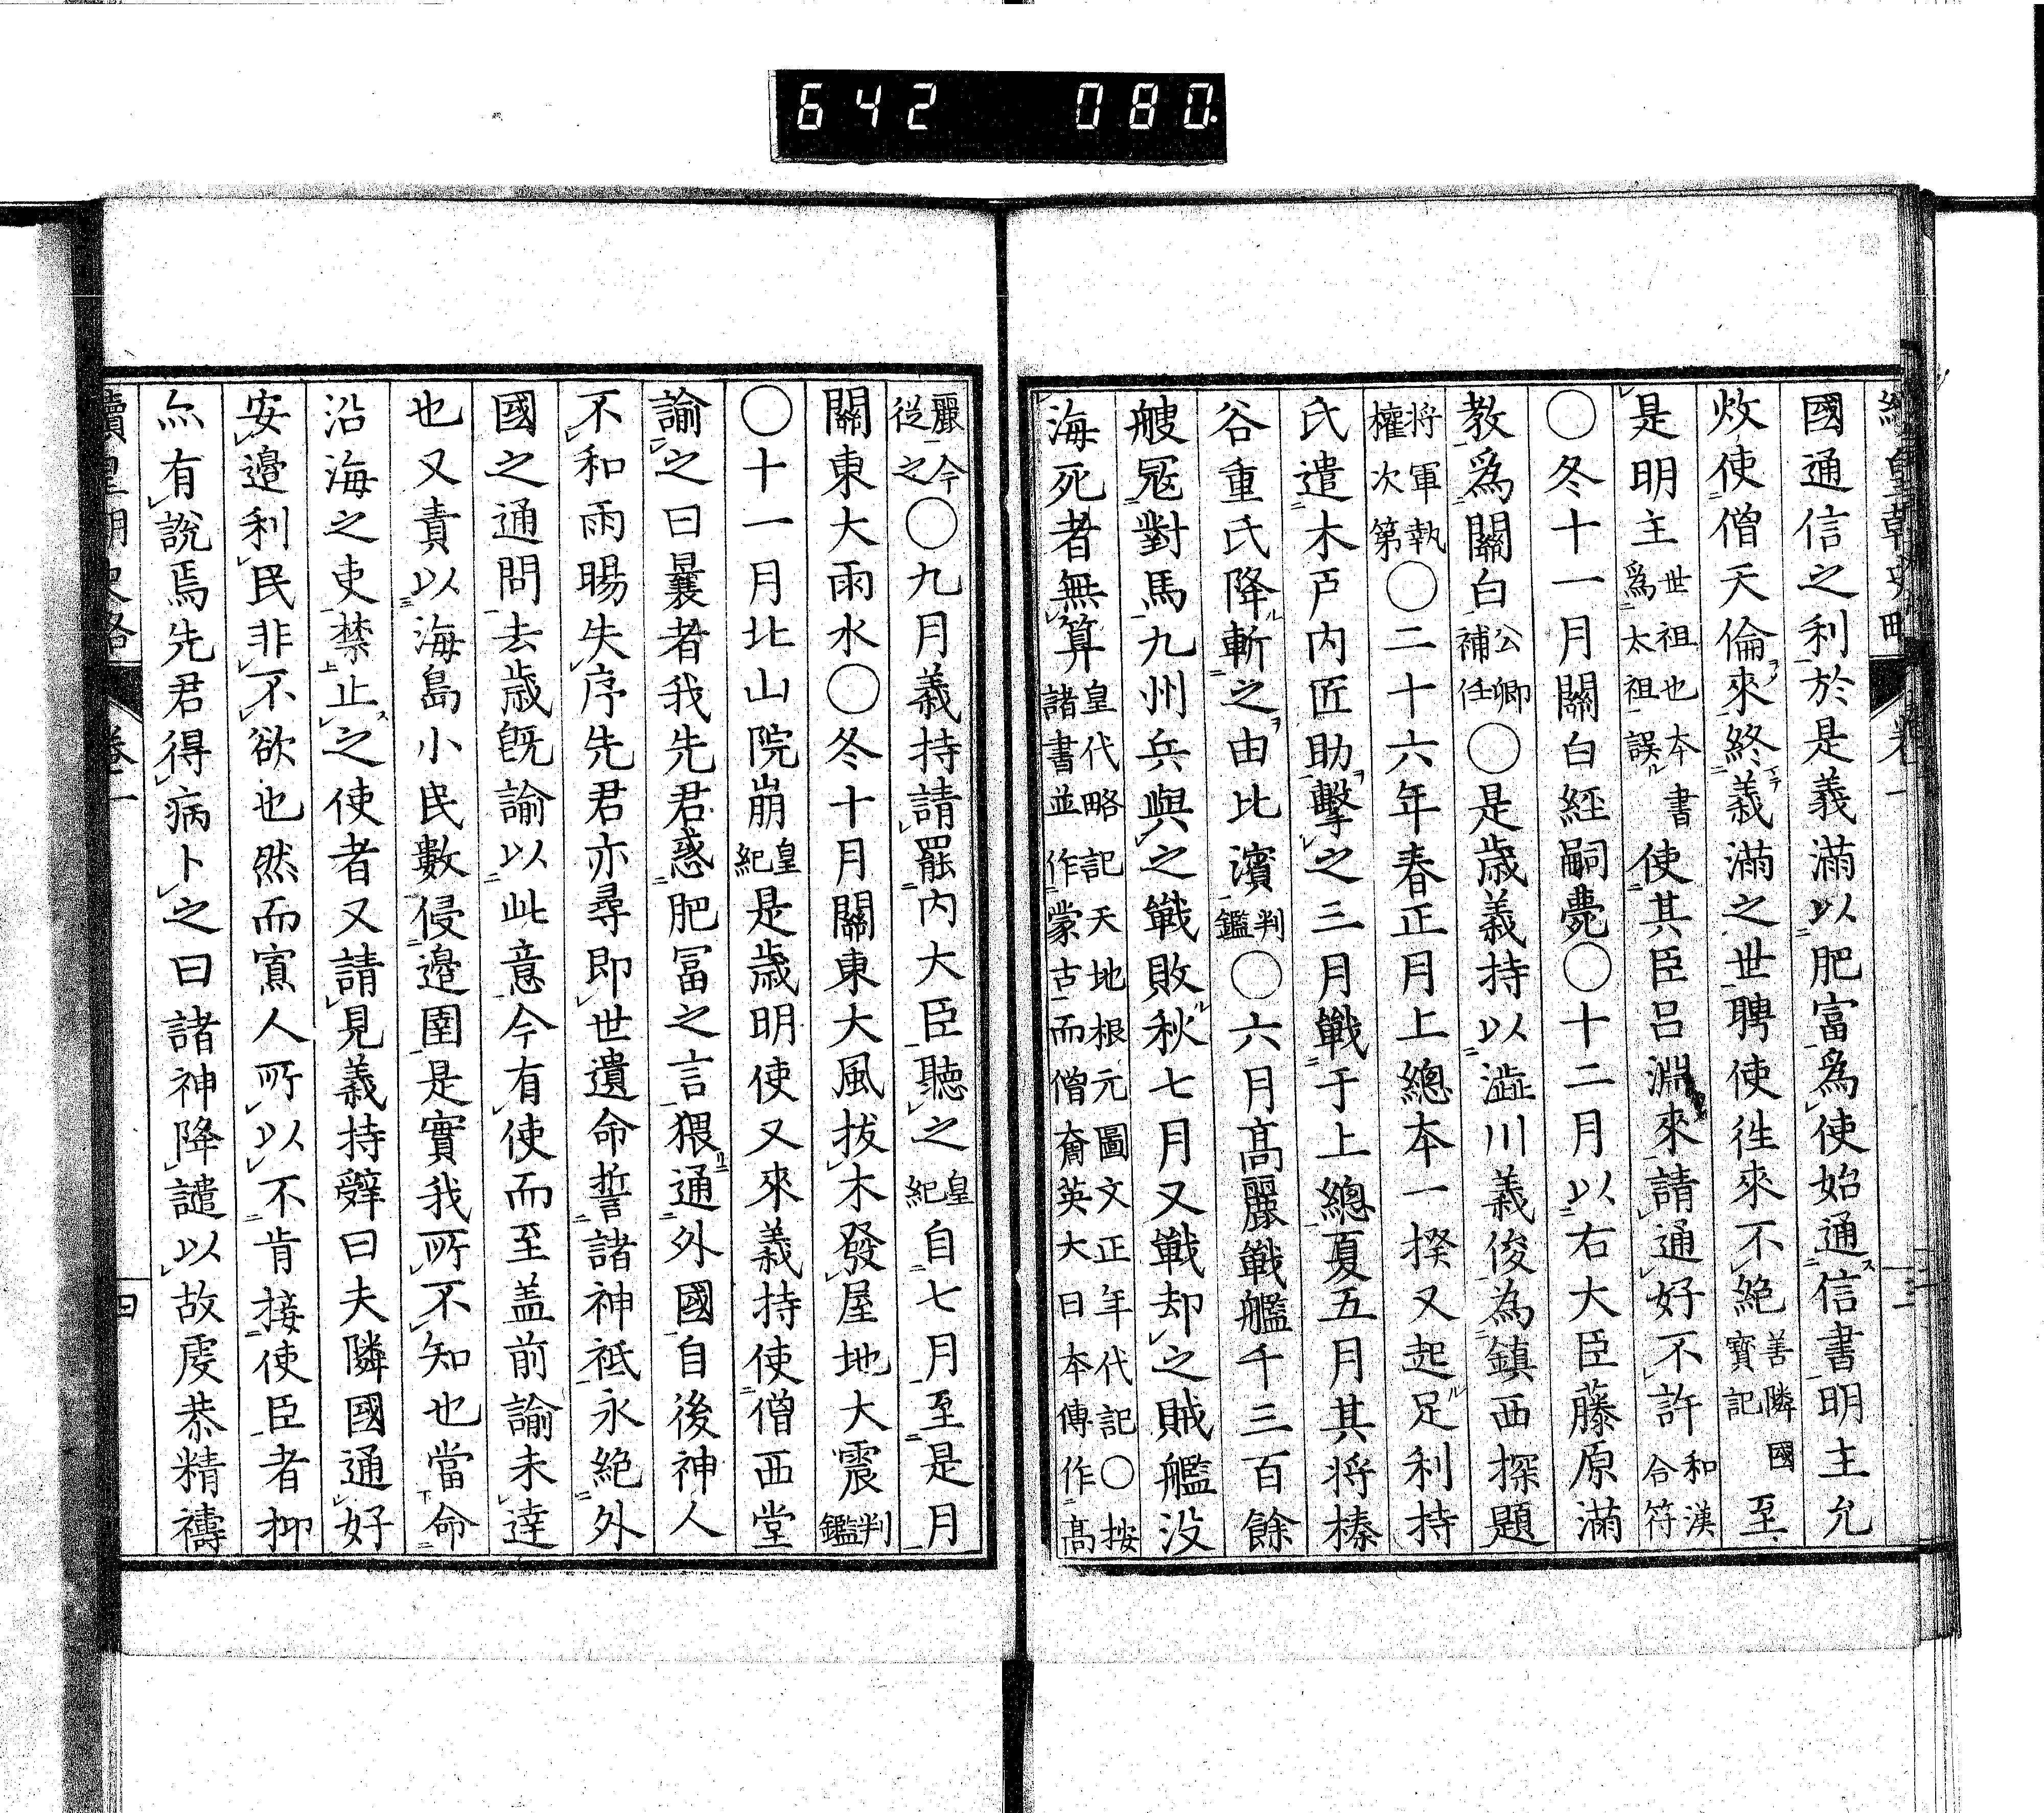 642 080
國通信之利於是義滿以肥富爲使始通信書明主允
炆使僧天倫來終義滿之世聘使往來不絕善隣國寶記至
是明主世祖也本書爲太祖誤使其臣呂淵來請通好不許和漢合符
○冬十一月關白經嗣薨○十二月以右大臣藤原滿
教爲關白公卿補任○是歲義持以澁川義俊為鎮西探題
將軍執權次第○二十六年春正月上總本一揆又起足利持
氏遣木戸内匠助擊之三月戰于上總夏五月其將榛
谷重氏降斬之由比濱判鑑○六月髙麗戰艦千三百餘
艘寇對馬九州兵與之戰敗秋七月又戰却之賊艦没
海死者無算皇代略記天地根元圖文正年代記○按諸書並作蒙古而僧齎英大日本傳作髙
麗今從之○九月義持請罷内大臣聽之皇紀自七月至是月
關東大雨水○冬十月關東大風拔木發屋地大震判鑑
○十一月北山院崩皇紀是歲明使又來義持使僧西堂
諭之曰曩者我先君惑肥冨之言猥通外國自後神人
不和雨暘失序先君亦尋即世遺命誓諸神祇永絕外
國之通問去歲旣諭以此意今有使而至盖前諭未達
也又責以海島小民數侵邊圉是實我所不知也當命
沿海之吏禁止之使者又請見義持辭曰夫隣國通好
安邊利民非不欲也然而寡人所以不肯接使臣者抑
亦有說焉先君得病卜之曰諸神降譴以故虔恭精禱
續皇朝史略 卷一 四